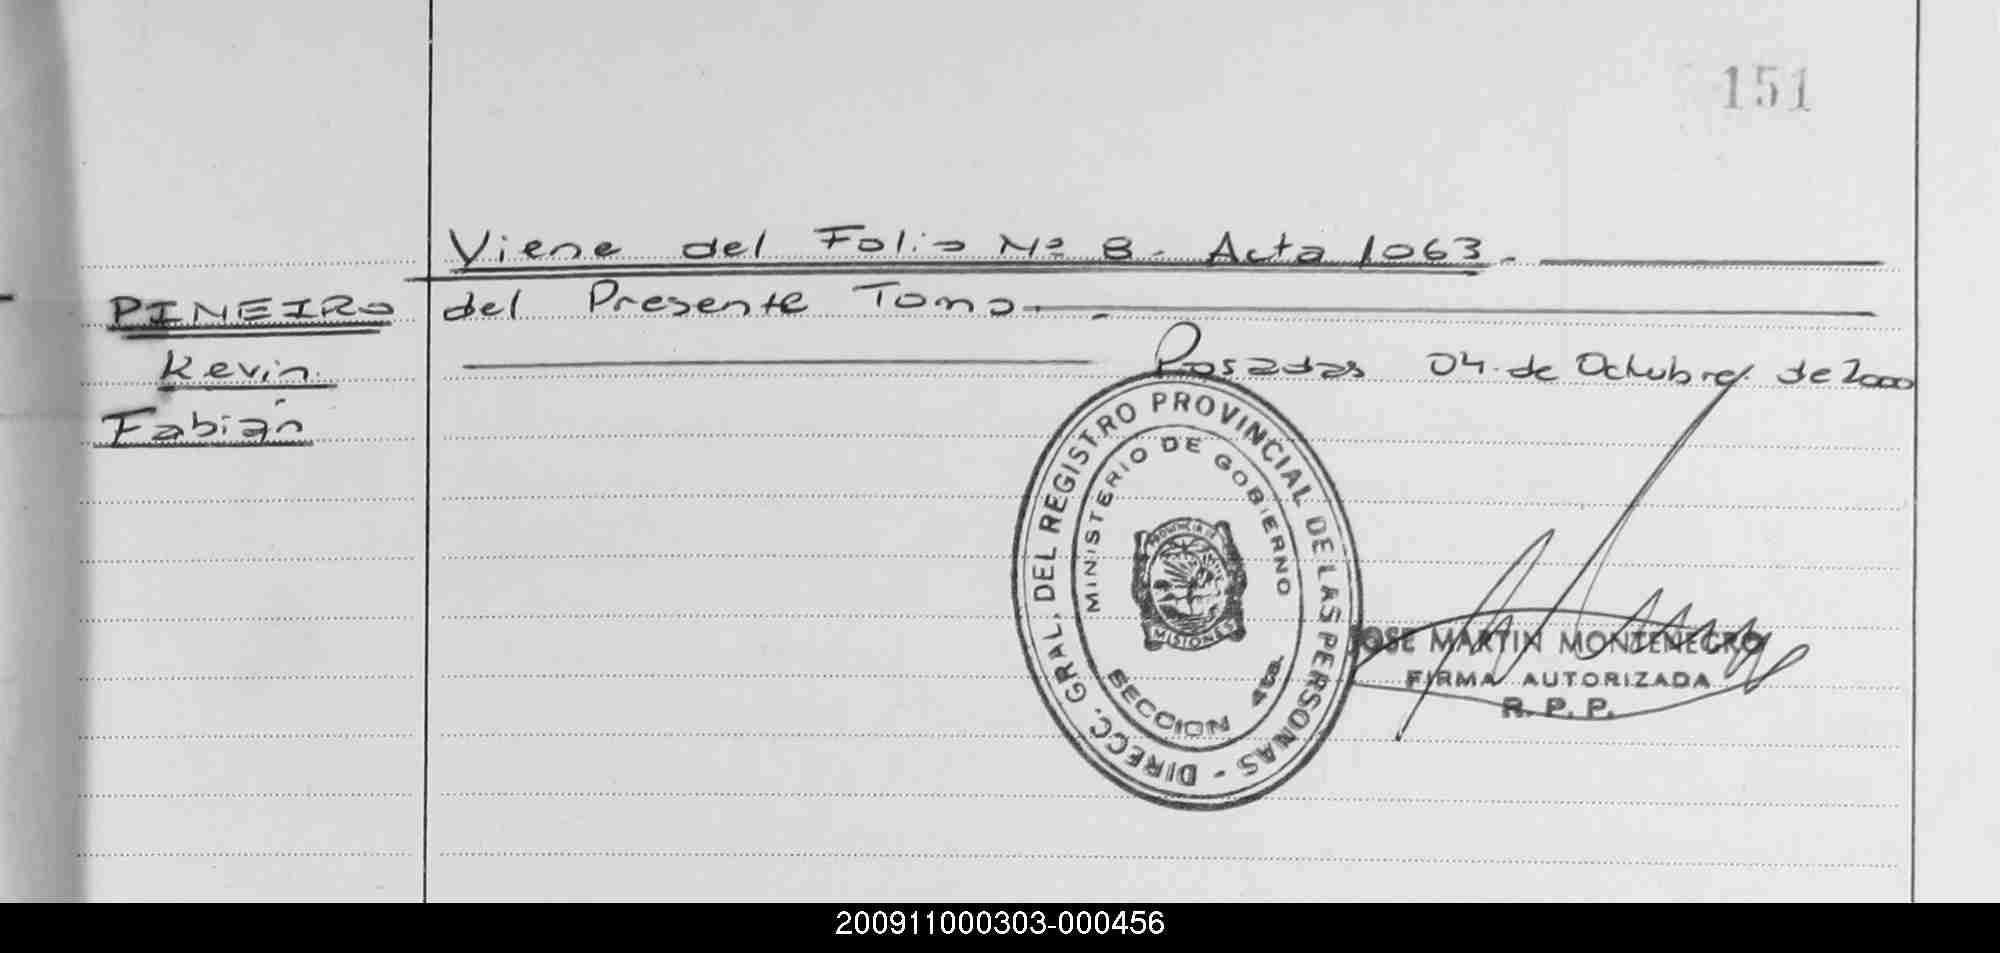 151
Viene del Folio Nº 8. Acta 1063.
PINEIRO del Presente Tomo.
Kevin Posadas 04 de Octubre de 2000
Fabián
DIRECC. GRAL. DEL REGISTRO PROVINCIAL DE LAS PERSONAS -
MINISTERIO DE GOBIERNO
PROVINCIA DE
MISIONES
SECCION 4ta.
JOSE MARTIN MONTENEGRO
FIRMA AUTORIZADA
R. P. P.
200911000303-000456